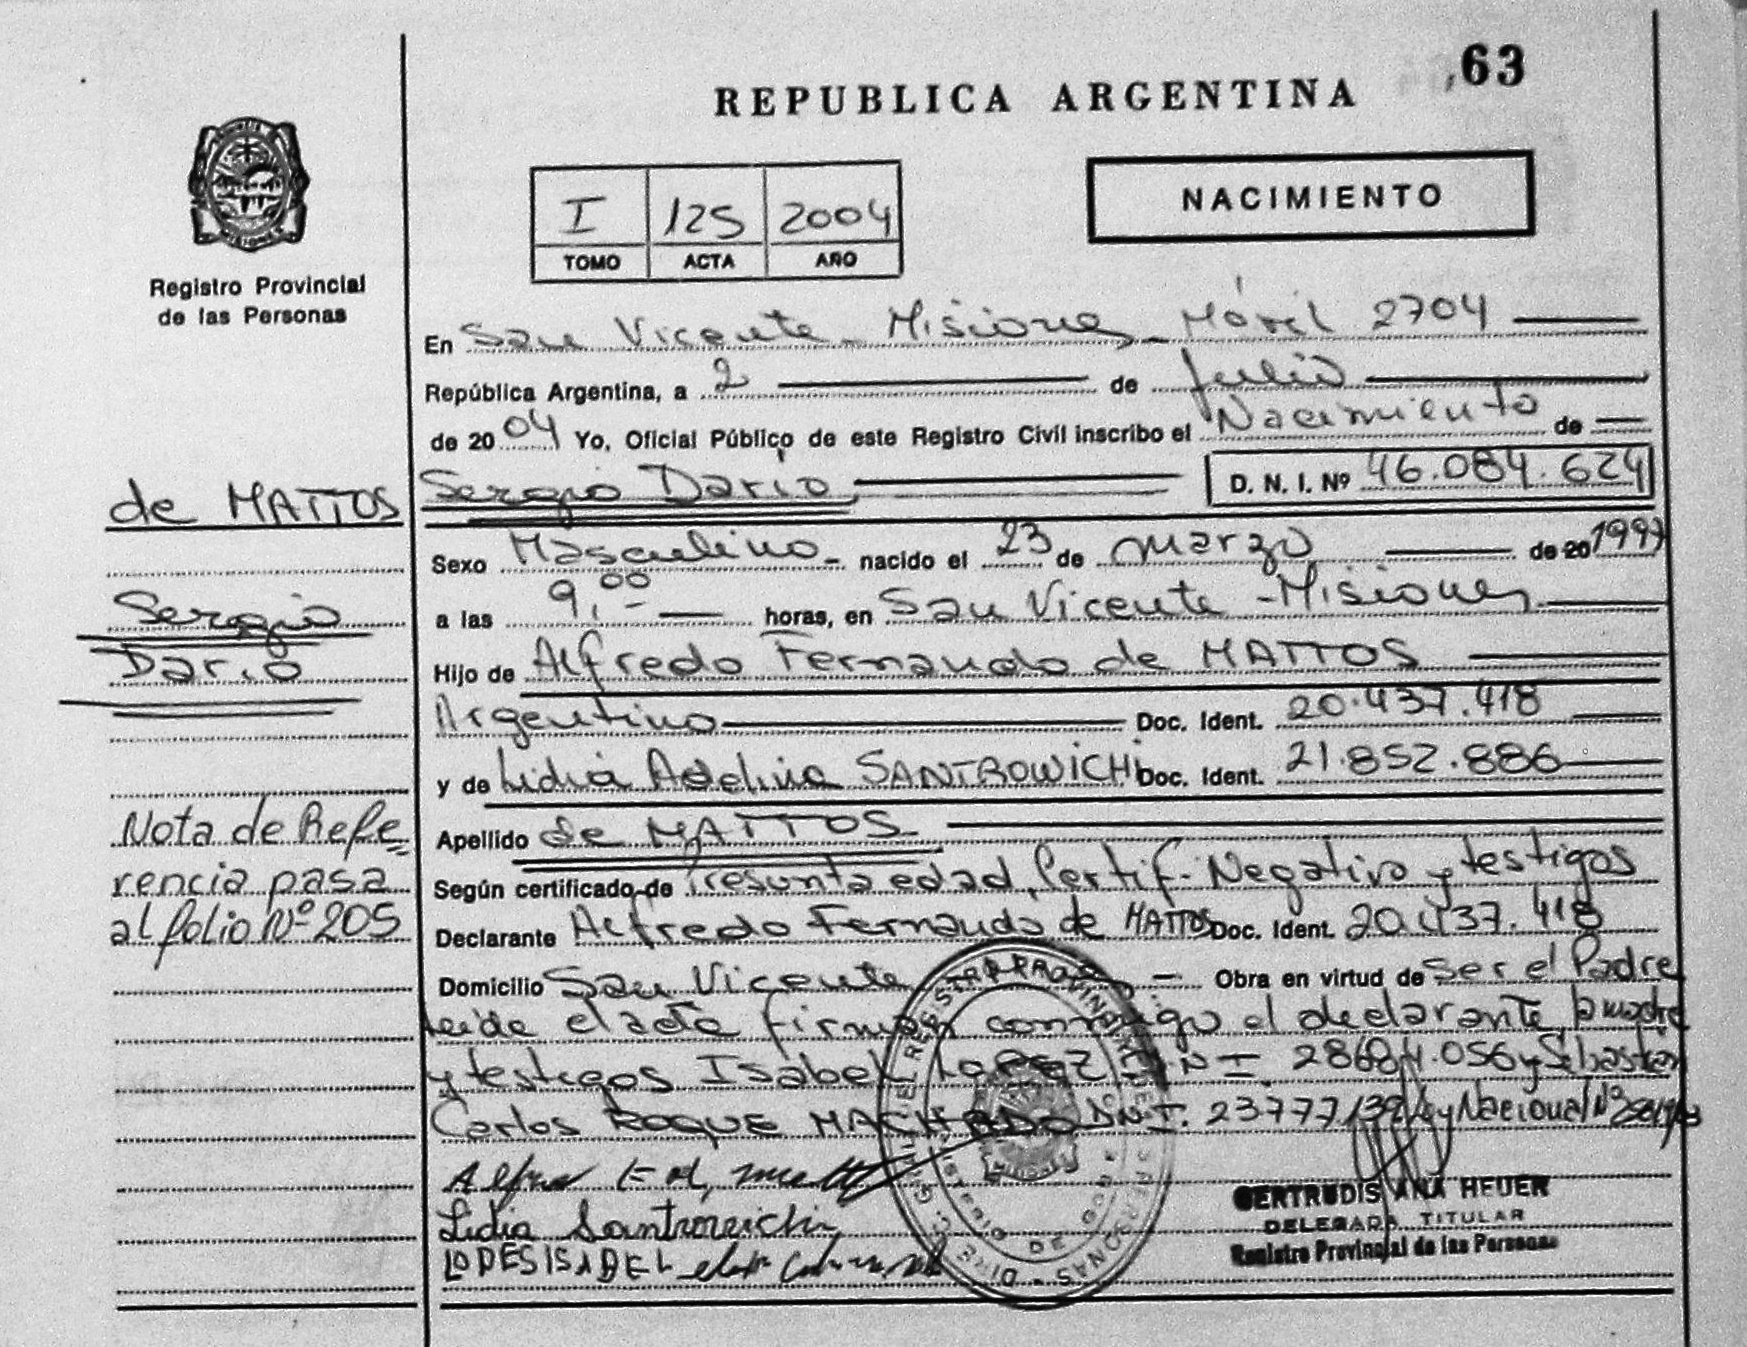 63
REPUBLICA ARGENTINA
NACIMIENTO
I 125 2004
TOMO ACTA AÑO
Registro Provincial
de las Personas
En San Vicente - Misiones - Móvil 2704
República Argentina, a 2 de Julio
de 2004 Yo, Oficial Público de este Registro Civil inscribo el Nacimiento de
Sergio Dario D. N. I. Nº 46.084.624
Sexo Masculino - nacido el 23 de marzo de 20 1997
a las 9,00 horas, en San Vicente - Misiones
Hijo de Alfredo Fernando de MATTOS
Argentino Doc. Ident. 20.437.418
y de Lidia Adelina SANTROWICHI Doc. Ident. 21.852.886
Apellido de MATTOS
Según certificado de Presunta edad, Certif. Negativo y testigos
Declarante Alfredo Fernando de MATTOS Doc. Ident. 20.437.418
Domicilio San Vicente - Obra en virtud de ser el Padre
Leída el acta firman conmigo el declarante, la madre
y testigos Isabel LOPEZ D N I 28684.056 y Sebastián
Carlos ROQUE MACHADO D.N.I. 23777139 Ley Nacional Nº
Lidia Santrowichi
LOPES ISABEL
GERTRUDIS ANA HEUER
DELEGADA TITULAR
Registro Provincial de las Personas
de MATTOS
Sergio
Dario
Nota de Refe
rencia pasa
al folio Nº 205